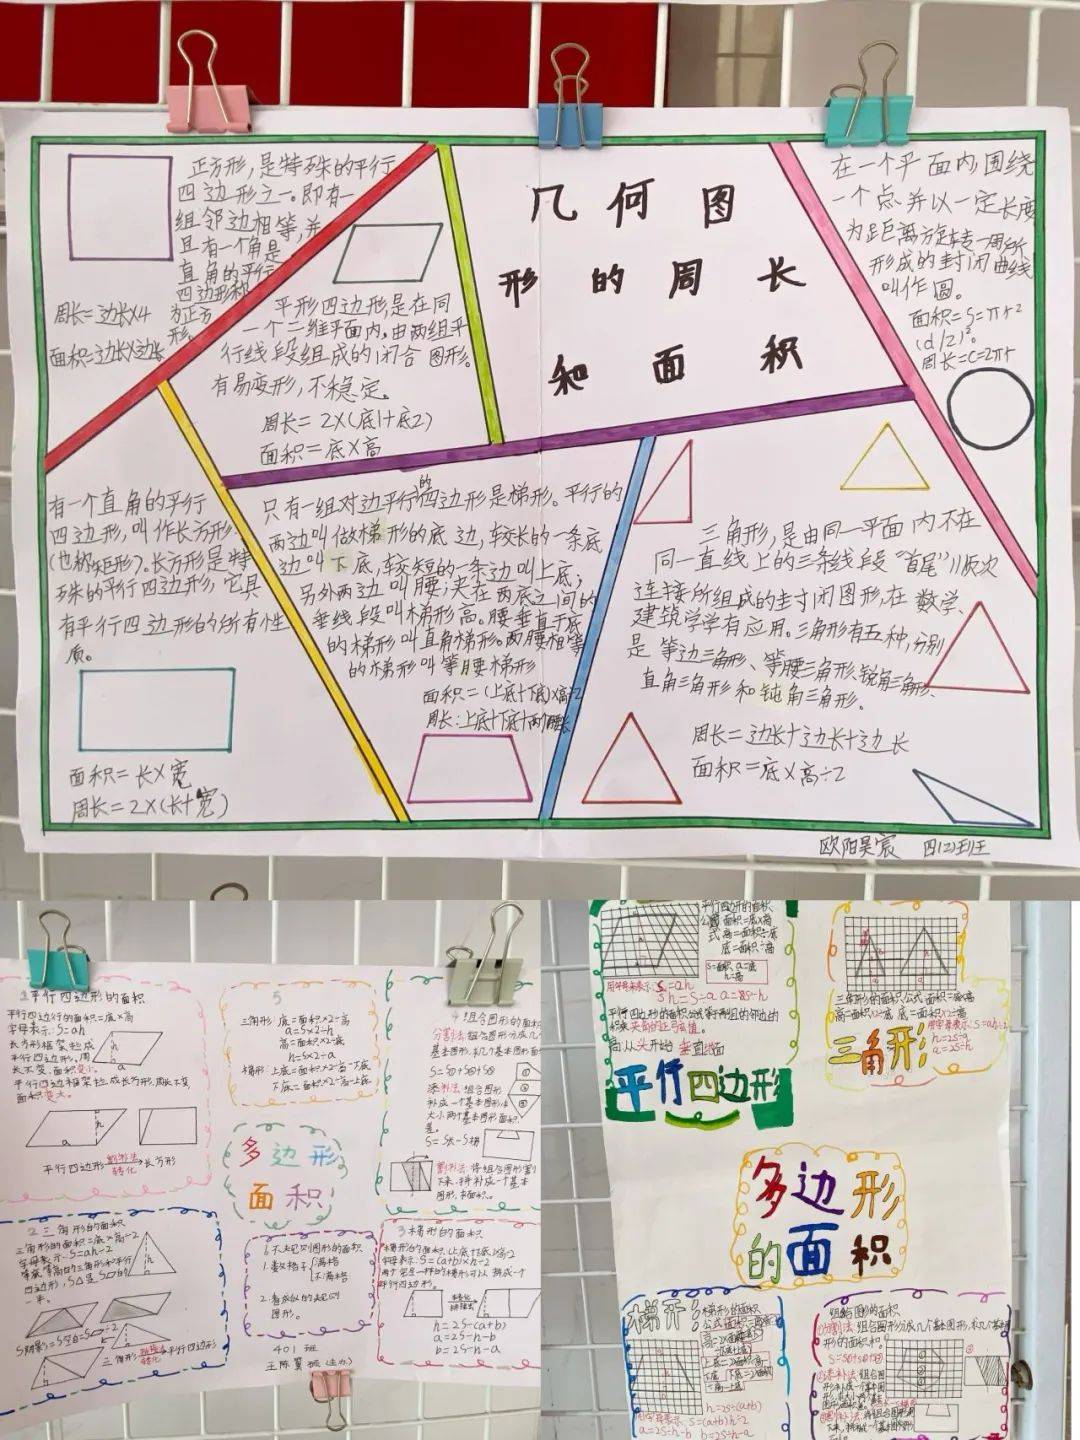 几何图
形的周长
和面积
正方形，是特殊的平行
四边形之一。即有一
组邻边相等，并
且有一个角是
直角的平行
四边形称
为正方
形。
周长=边长×4
面积=边长×边长
平行四边形，是在同
一个二维平面内，由两组平
行线段组成的闭合图形。
有易变形，不稳定。
周长=2×(底1+底2)
面积=底×高
在一个平面内，围绕
一个点并以一定长度
为距离旋转一周所
形成的封闭曲线
叫作圆。
面积=S=πr²
(d/2)²。
周长=C=2πr
有一个直角的平行
四边形，叫作长方形
(也称矩形)。长方形是特
殊的平行四边形，它具
有平行四边形的所有性
质。
面积=长×宽
周长=2×(长+宽)
只有一组对边平行的四边形是梯形。平行的
两边叫做梯形的底边，较长的一条底
边叫下底，较短的一条边叫上底；
另外两边叫腰；夹在两底之间的
垂线段叫梯形高。腰垂直于底
的梯形叫直角梯形。两腰相等
的梯形叫等腰梯形
面积=(上底+下底)×高÷2
周长:上底+下底+两个腰长
三角形，是由同一平面内不在
同一直线上的三条线段“首尾”顺次
连接所组成的封闭图形，在数学、
建筑学学有应用。三角形有五种，分别
是等边三角形、等腰三角形、锐角三角形、
直角三角形和钝角三角形。
周长=边长+边长+边长
面积=底×高÷2
欧阳昊宸 四(2)班
1平行四边形的面积
平行四边行的面积=底×高
字母表示:S=ah
长方形框架拉成
平行四边形。周
长不变,面积变小。
平行四边框架拉成长方形,周长不变
面积变大。
平行四边形 割补法 转化 长方形
5
三角形:底=面积×2÷高
a=S×2÷h
高=面积×2÷底
h=S×2÷a
梯形:上底=面积×2÷高-下底
下底=面积×2÷高-上底
4组合图形的面积
分割法:组合图形分成几个
基本图形
添补法:组合图形
补成一个基本图形
割补法:将组合图形割
下来,拼补成一个基本
图形,求面积。
多边形
面积
2三角形的面积
三角形的面积=底×高÷2
字母表示:S=ah÷2
等底等高的三角形和平行
四边形,S△是S▱的
一半。
6.不规则图形的面积
1.数格子 满格
不满格
2.看成似的规则
图形。
401班
3梯形的面积
梯形的面积=(上底+下底)×高÷2
字母表示:S=(a+b)×h÷2
两个完全一样的梯形可以拼成一个
平行四边形。
h=2S÷(a+b)
a=2S÷h-b
b=2S÷h-a
平行四边形的面积
公式 面积=底×高
高=面积÷底
底=面积÷高
S=面积 a=底
h=高
用字母表示:S=ah
平行四边形
三角形的面积公式:面积=底×高÷2
高=面积×2÷底 底=面积×2÷高
用字母表示:S=ah÷2
h=2S÷a
a=2S÷h
三角形
多边形
的面积
梯形:
梯形的面积
h=2S÷(a+b)
用字母表示:S=(a+b)h÷2
a=2S÷h-b b=2S÷h-a
组合图形的面积
①分割法:组合图形分成几个基本图形